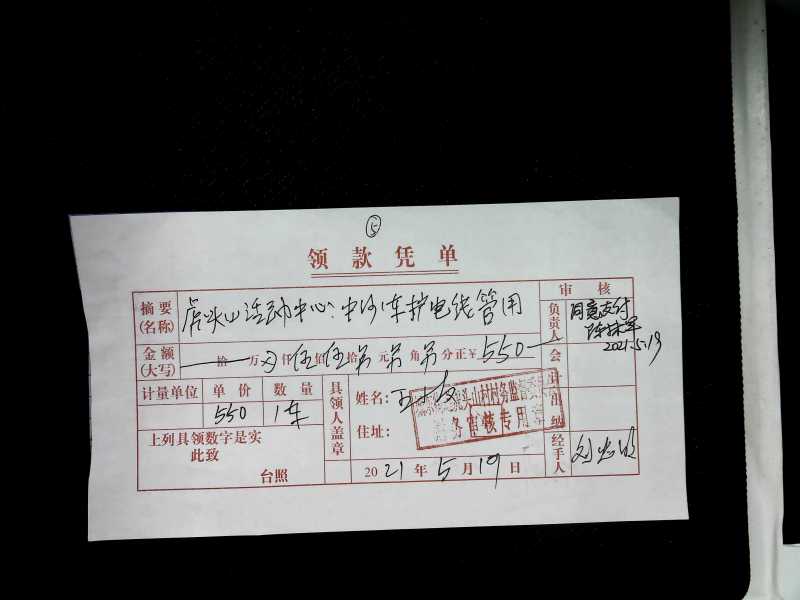 ⑤
领款凭单
摘要(名称) 虎头山活动中心:中沙1车护电线管用
审核
负责人 同意支付
2021.5.19
金额(大写) 拾 万 仟 伍 佰 伍 拾 元 角 分正 ¥ 550
会计
计量单位 单价 数量
550 1车
具领人盖章
姓名:
住址:
头山村村务监督委员
务审核专用章
出纳
上列具领数字是实
此致
台照
2021年5月19日
经手人